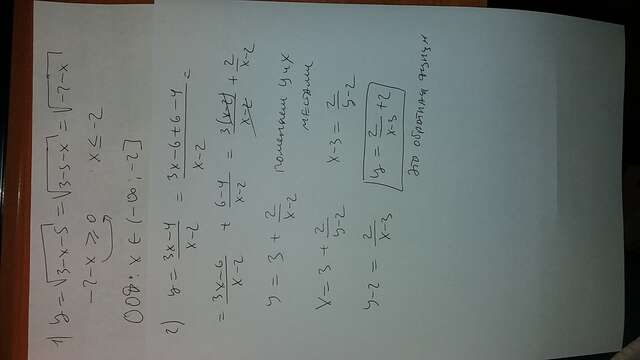 1) y = √(3-x-5) = √(3-5-x) = √(-2-x)
-2-x ≥ 0   x ≤ -2
ООФ: x ∈ (-∞; -2]
2) y = (3x-4)/(x-2) = (3x-6+6-4)/(x-2) =
= (3x-6)/(x-2) + (6-4)/(x-2) = 3(x-2)/(x-2) + 2/(x-2)
y = 3 + 2/(x-2)   поменяем y и x
местами
x = 3 + 2/(y-2)   x-3 = 2/(y-2)
y-2 = 2/(x-3)   y = 2/(x-3) + 2
это обратная функция